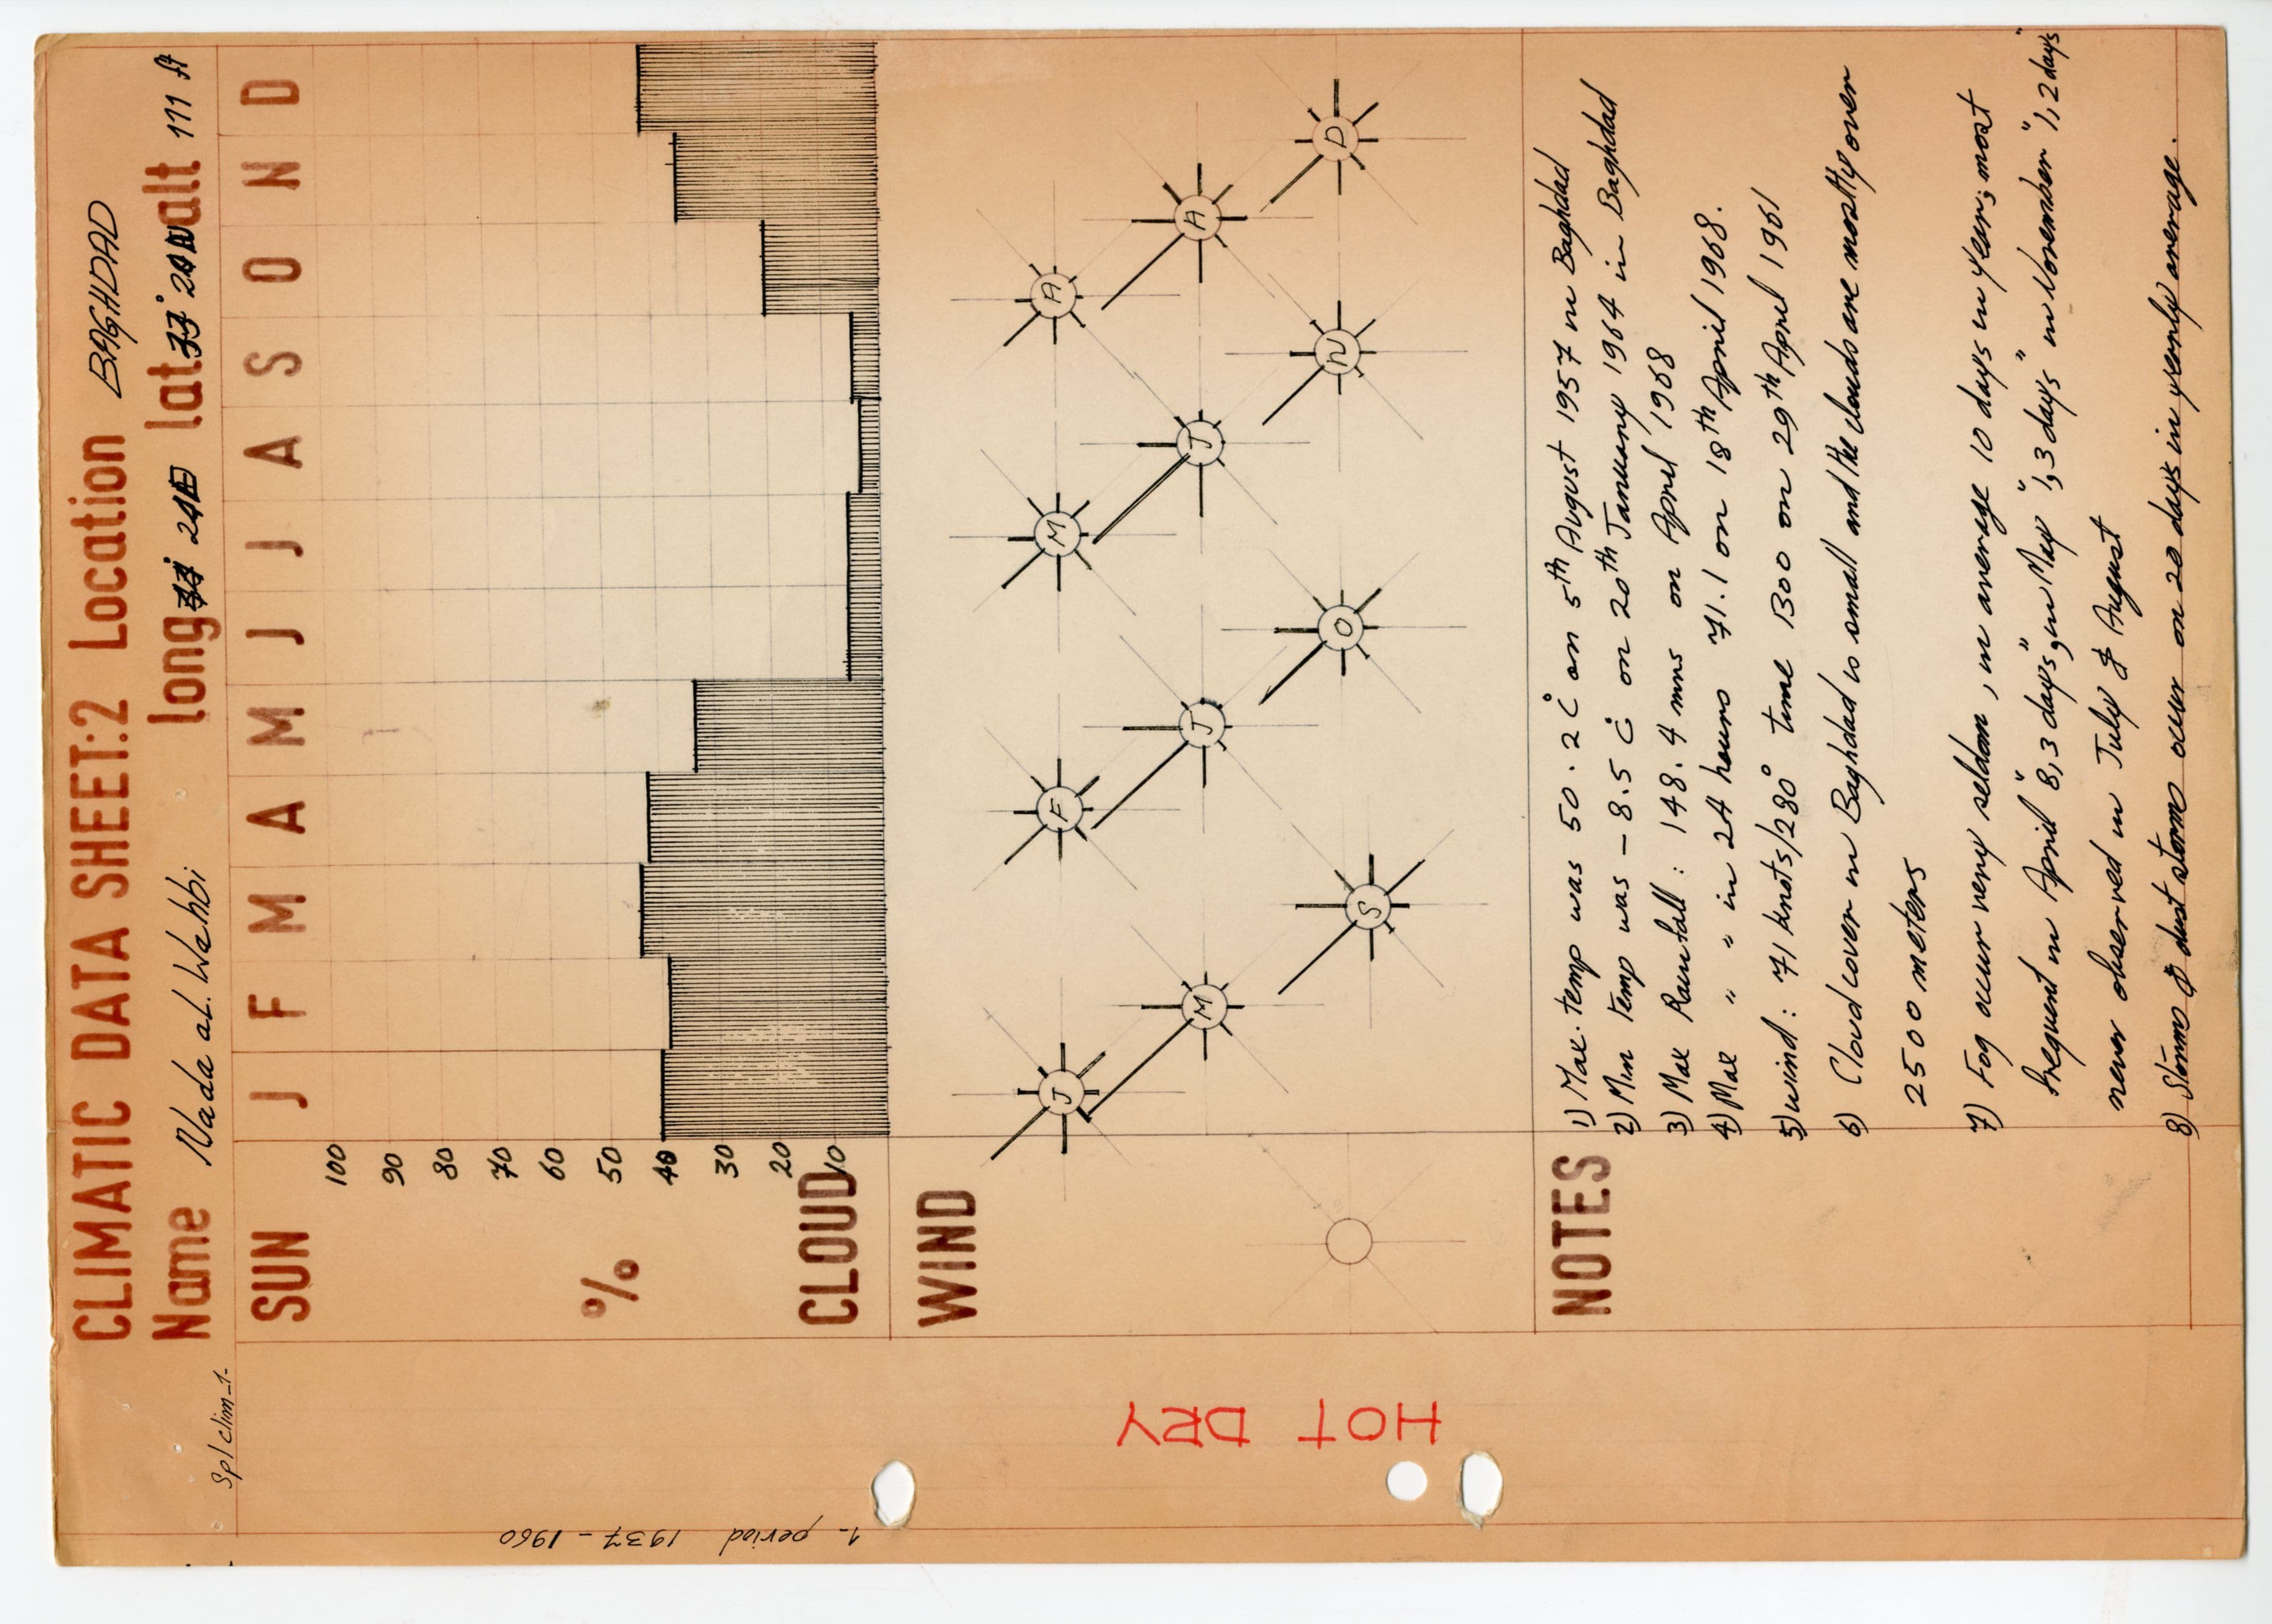 CLIMATIC DATA SHEET:2 Location BAGHDAD
Name Nada al. Wahbi long 24E lat 33° 20N alt 111 ft
Spl clim_1-
SUN J F M A M J J A S O N D
100
90
80
70
60
%
50
40
30
20
10
CLOUD
WIND
J F M A
M J J A
S O N D
NOTES
1) Max. temp was 50.2 C° on 5th August 1957 in Baghdad
2) Min temp was - 8.5 C° on 20th January 1964 in Baghdad
3) Max Rainfall : 148.4 mms on April 1968
4) Max " " in 24 hours 71.1 on 18th April 1968.
5) wind : 71 knots/280° time 1300 on 29th April 1961
6) Cloud cover in Baghdad is small and the clouds are mostly over
2500 meters
7) Fog occur very seldom, in average 10 days in year; most
frequent in April "8,3 days", in May "1,3 days" in November "1,2 days"
never observed in July & August
8) Storms & dust storms occur on 20 days in yearly average.
HOT DRY
1- period 1937 - 1960